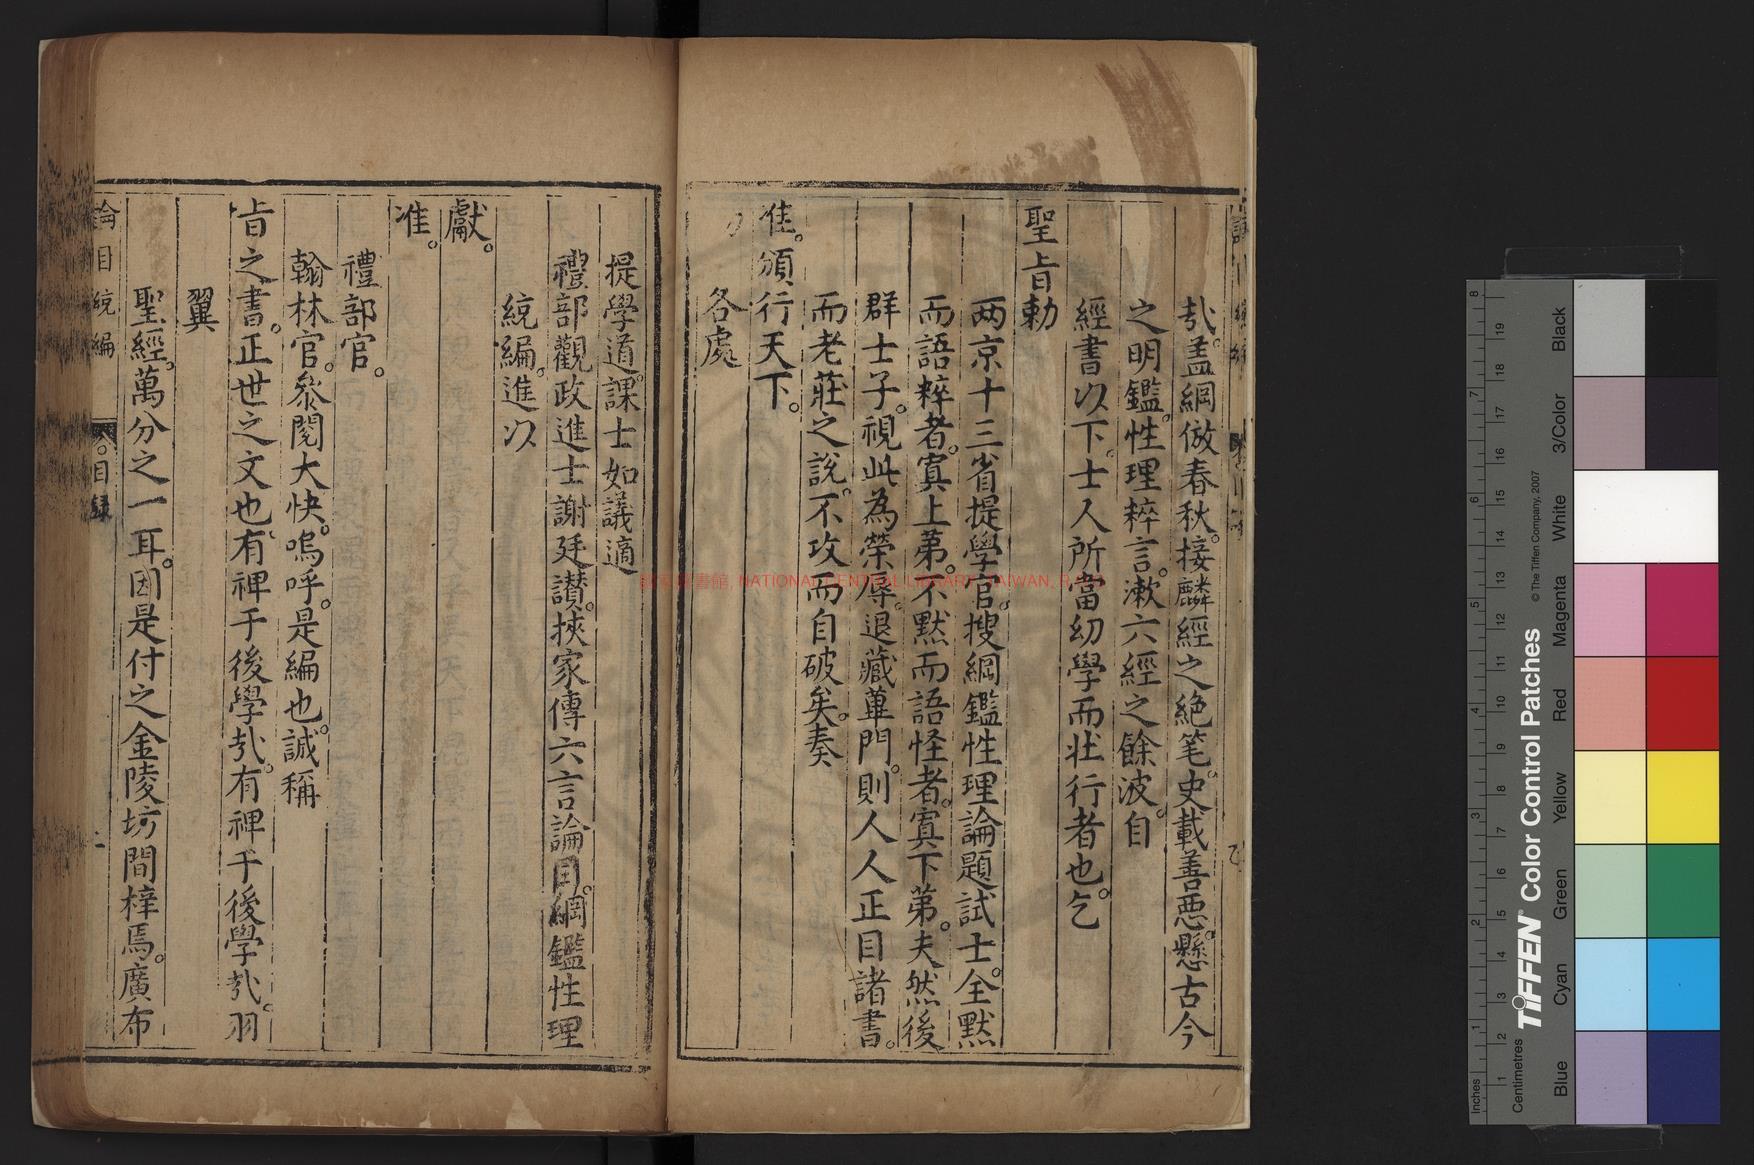 哉。盖綱倣春秋。接麟經之絶笔。史載善惡。懸古今
之明鑑。性理粹言。漱六經之餘波。自
經書以下。士人所當幼學而壮行者也。乞
聖旨勅
两京十三省提學官。搜綱鑑性理論題試士。全黙
而語粹者。寘上第。不黙而語怪者。寘下第。夫然後
群士子。視此為榮辱。退藏蓽門。則人人正目諸書。
而老莊之說。不攻而自破矣。奏
准。頒行天下。
各處
提學道。課士如議適
禮部觀政進士謝廷讃。挾家傳六言論目。綱鑑性理
統編。進以
獻。
准。
禮部官。
翰林官。叅閱大快。嗚呼。是編也。誠稱
旨之書。正世之文也。有裨于後學哉。有裨于後學哉。羽
翼
聖經。萬分之一耳。因是付之金陵坊間梓焉。廣布
論目統編
目録
國家圖書館, NATIONAL CENTRAL LIBRARY, TAIWAN, R.O.C
TIFFEN® Color Control Patches
© The Tiffen Company, 2007
Inches
Centimetres
Blue
Cyan
Green
Yellow
Red
Magenta
White
3/Color
Black